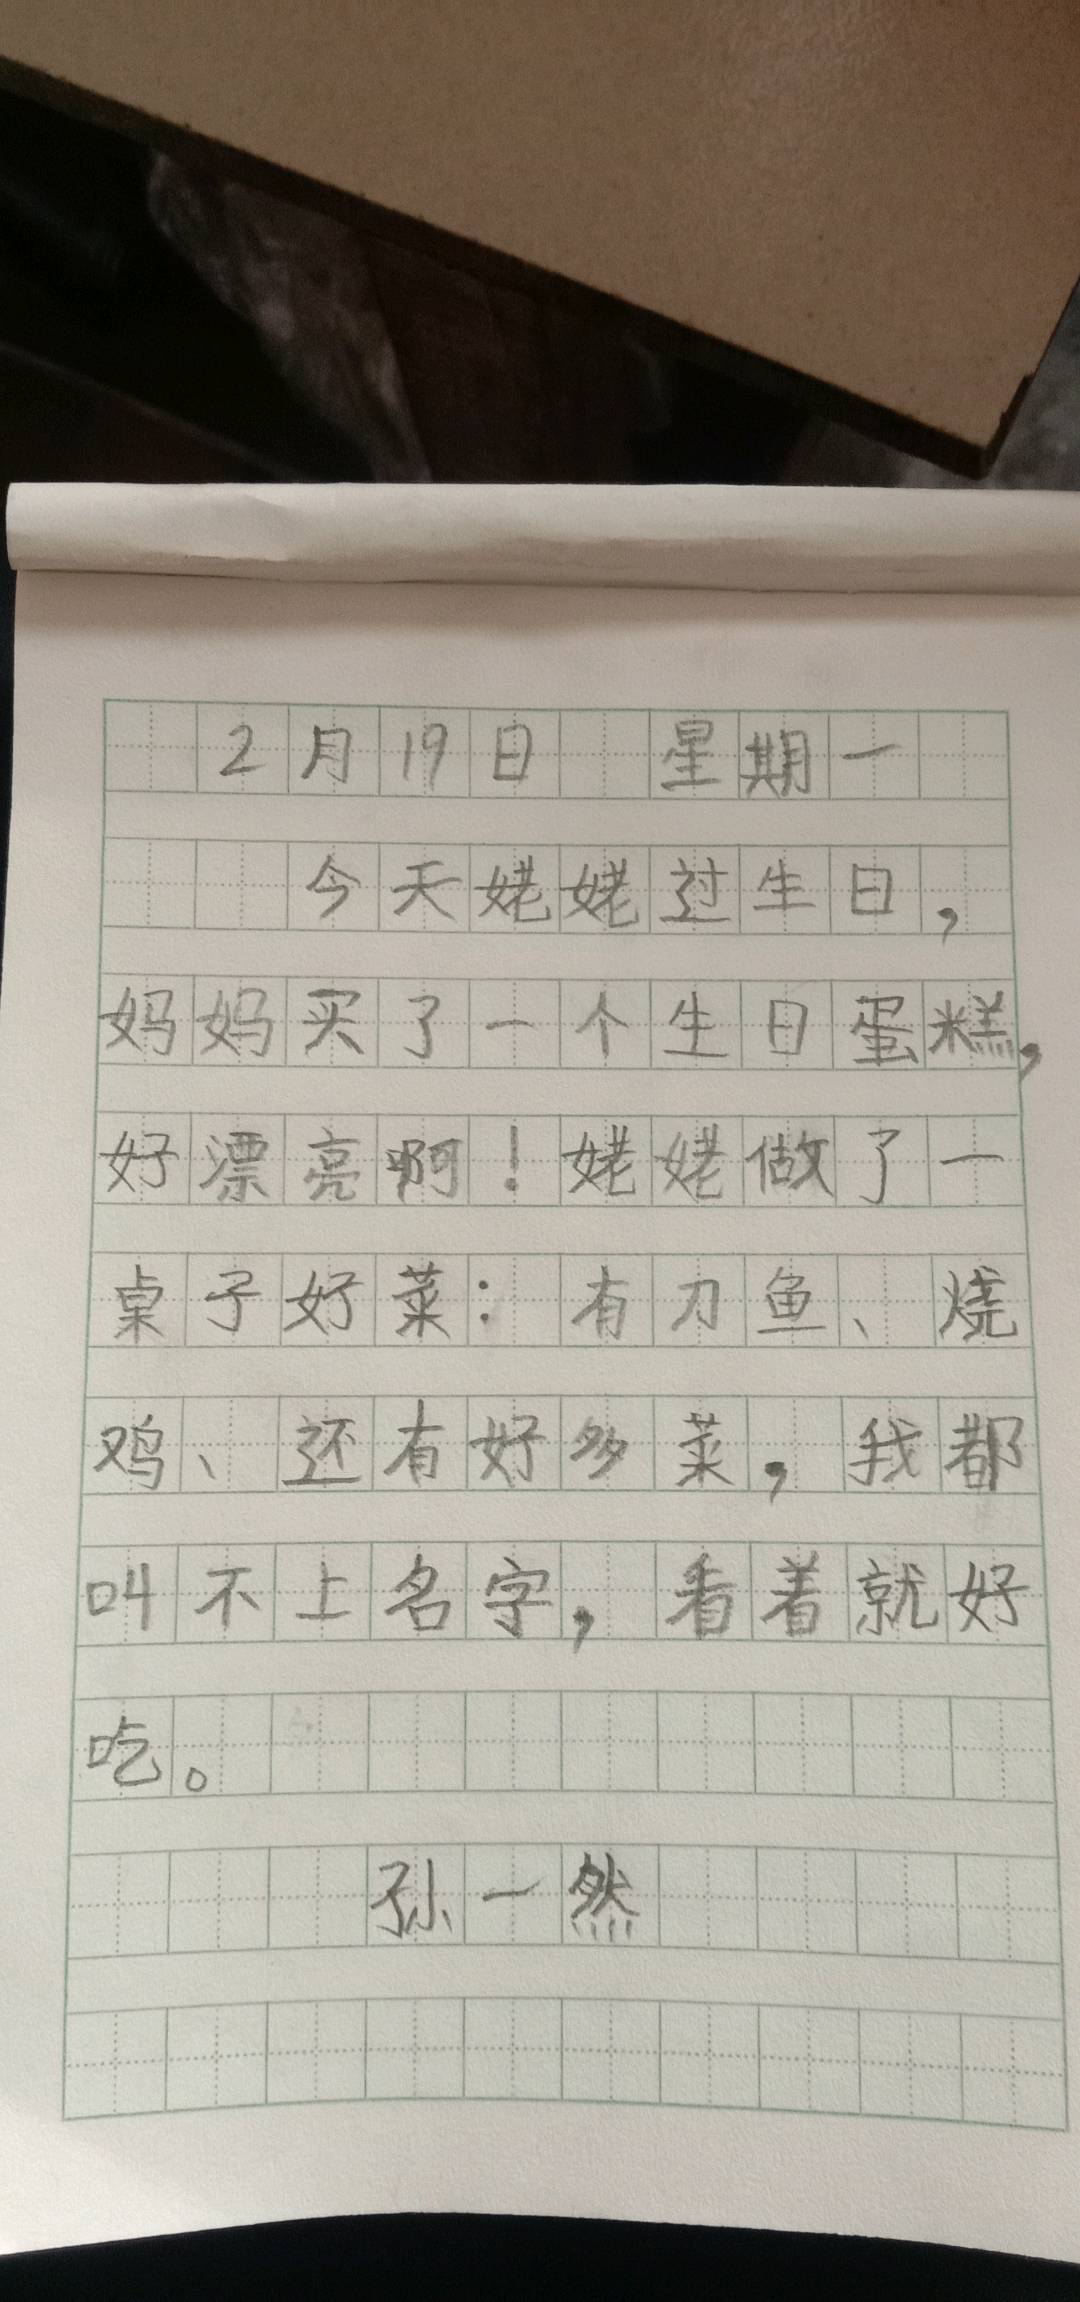 2月19日 星期一
今天姥姥过生日，
妈妈买了一个生日蛋糕，
好漂亮啊！姥姥做了一
桌子好菜：有刀鱼、烧
鸡、还有好多菜，我都
叫不上名字，看着就好
吃。
孙一然